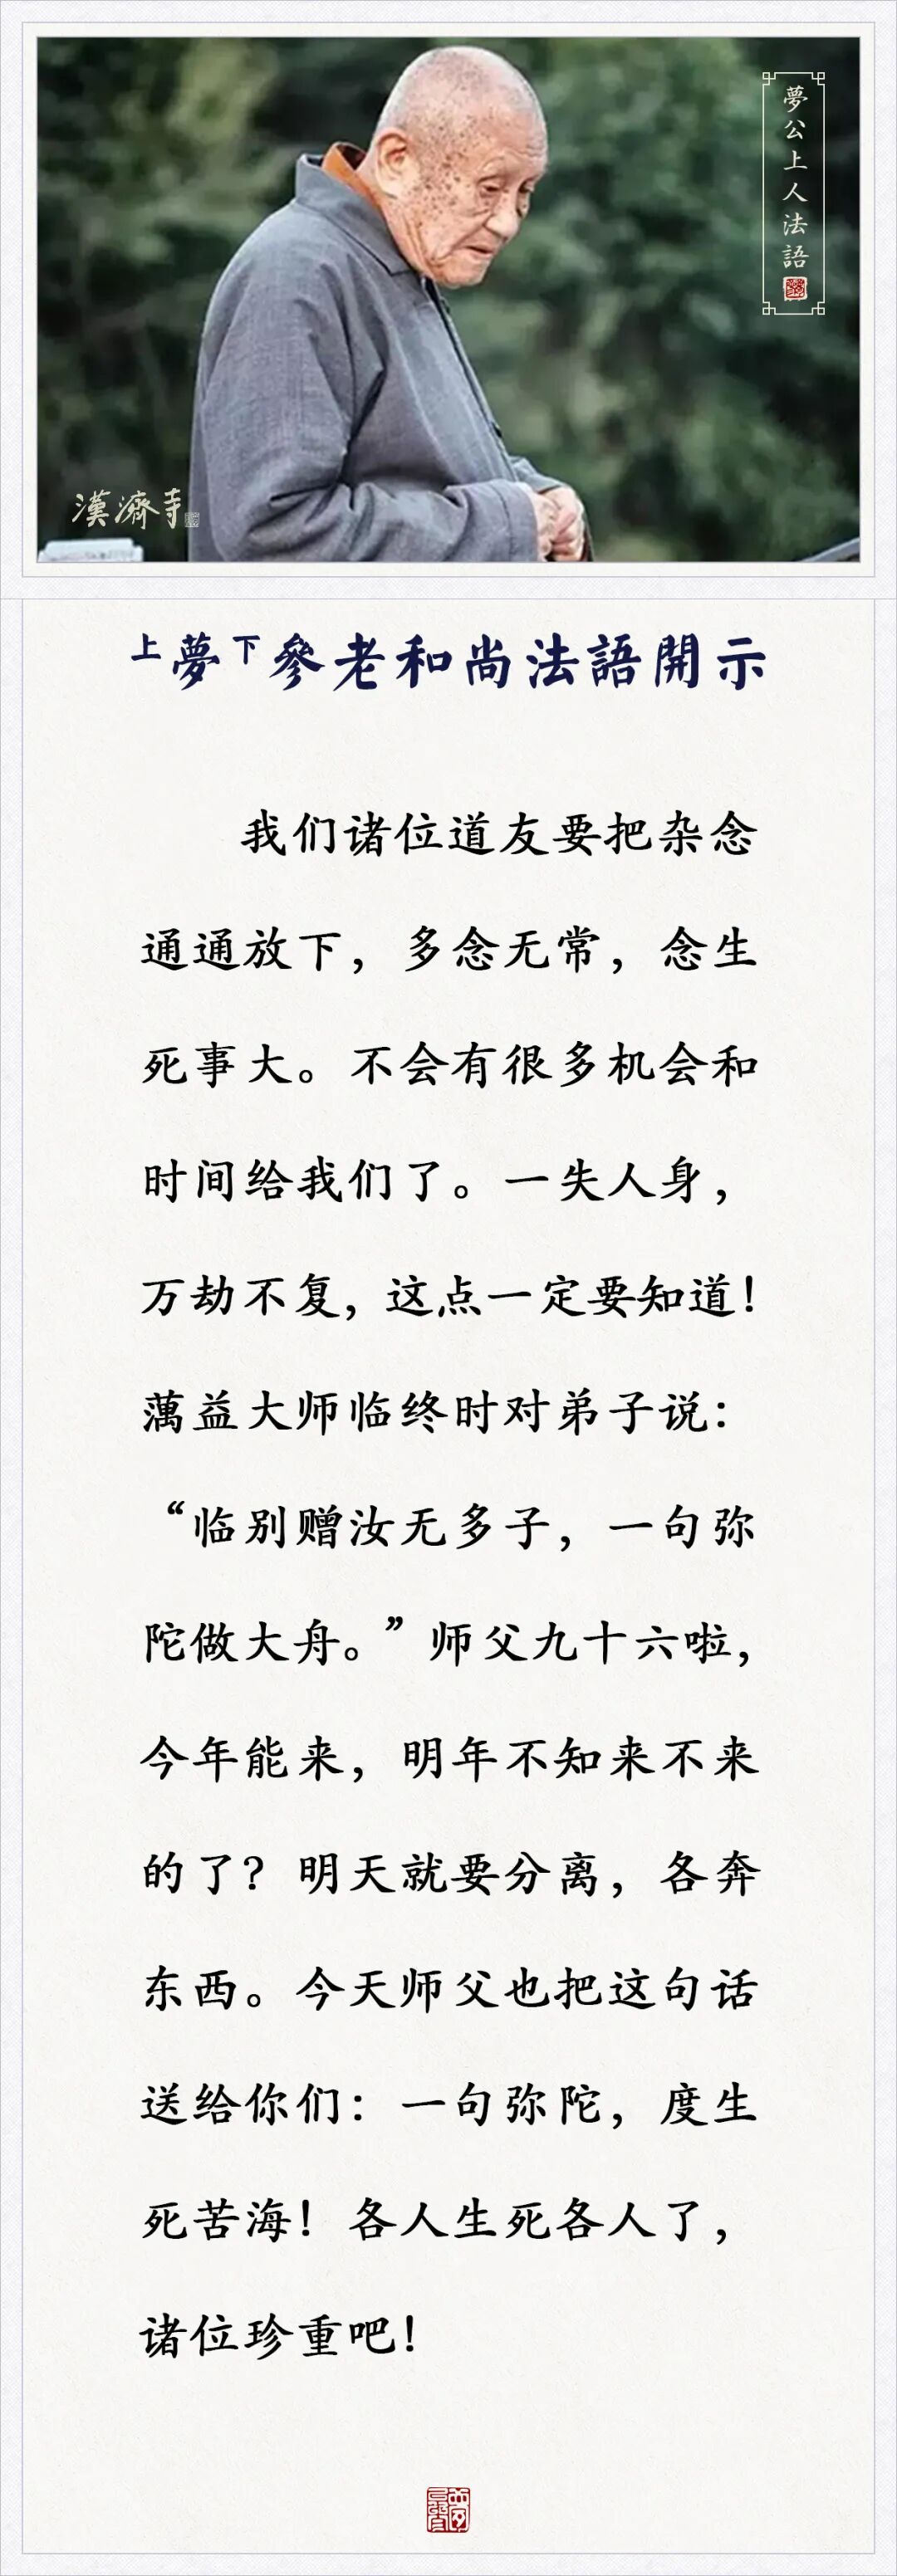 夢公上人法語
漢濟寺
上夢下參老和尚法語開示
我们诸位道友要把杂念
通通放下，多念无常，念生
死事大。不会有很多机会和
时间给我们了。一失人身，
万劫不复，这点一定要知道！
蕅益大师临终时对弟子说：
“临别赠汝无多子，一句弥
陀做大舟。”师父九十六啦，
今年能来，明年不知来不来
的了？明天就要分离，各奔
东西。今天师父也把这句话
送给你们：一句弥陀，度生
死苦海！各人生死各人了，
诸位珍重吧！